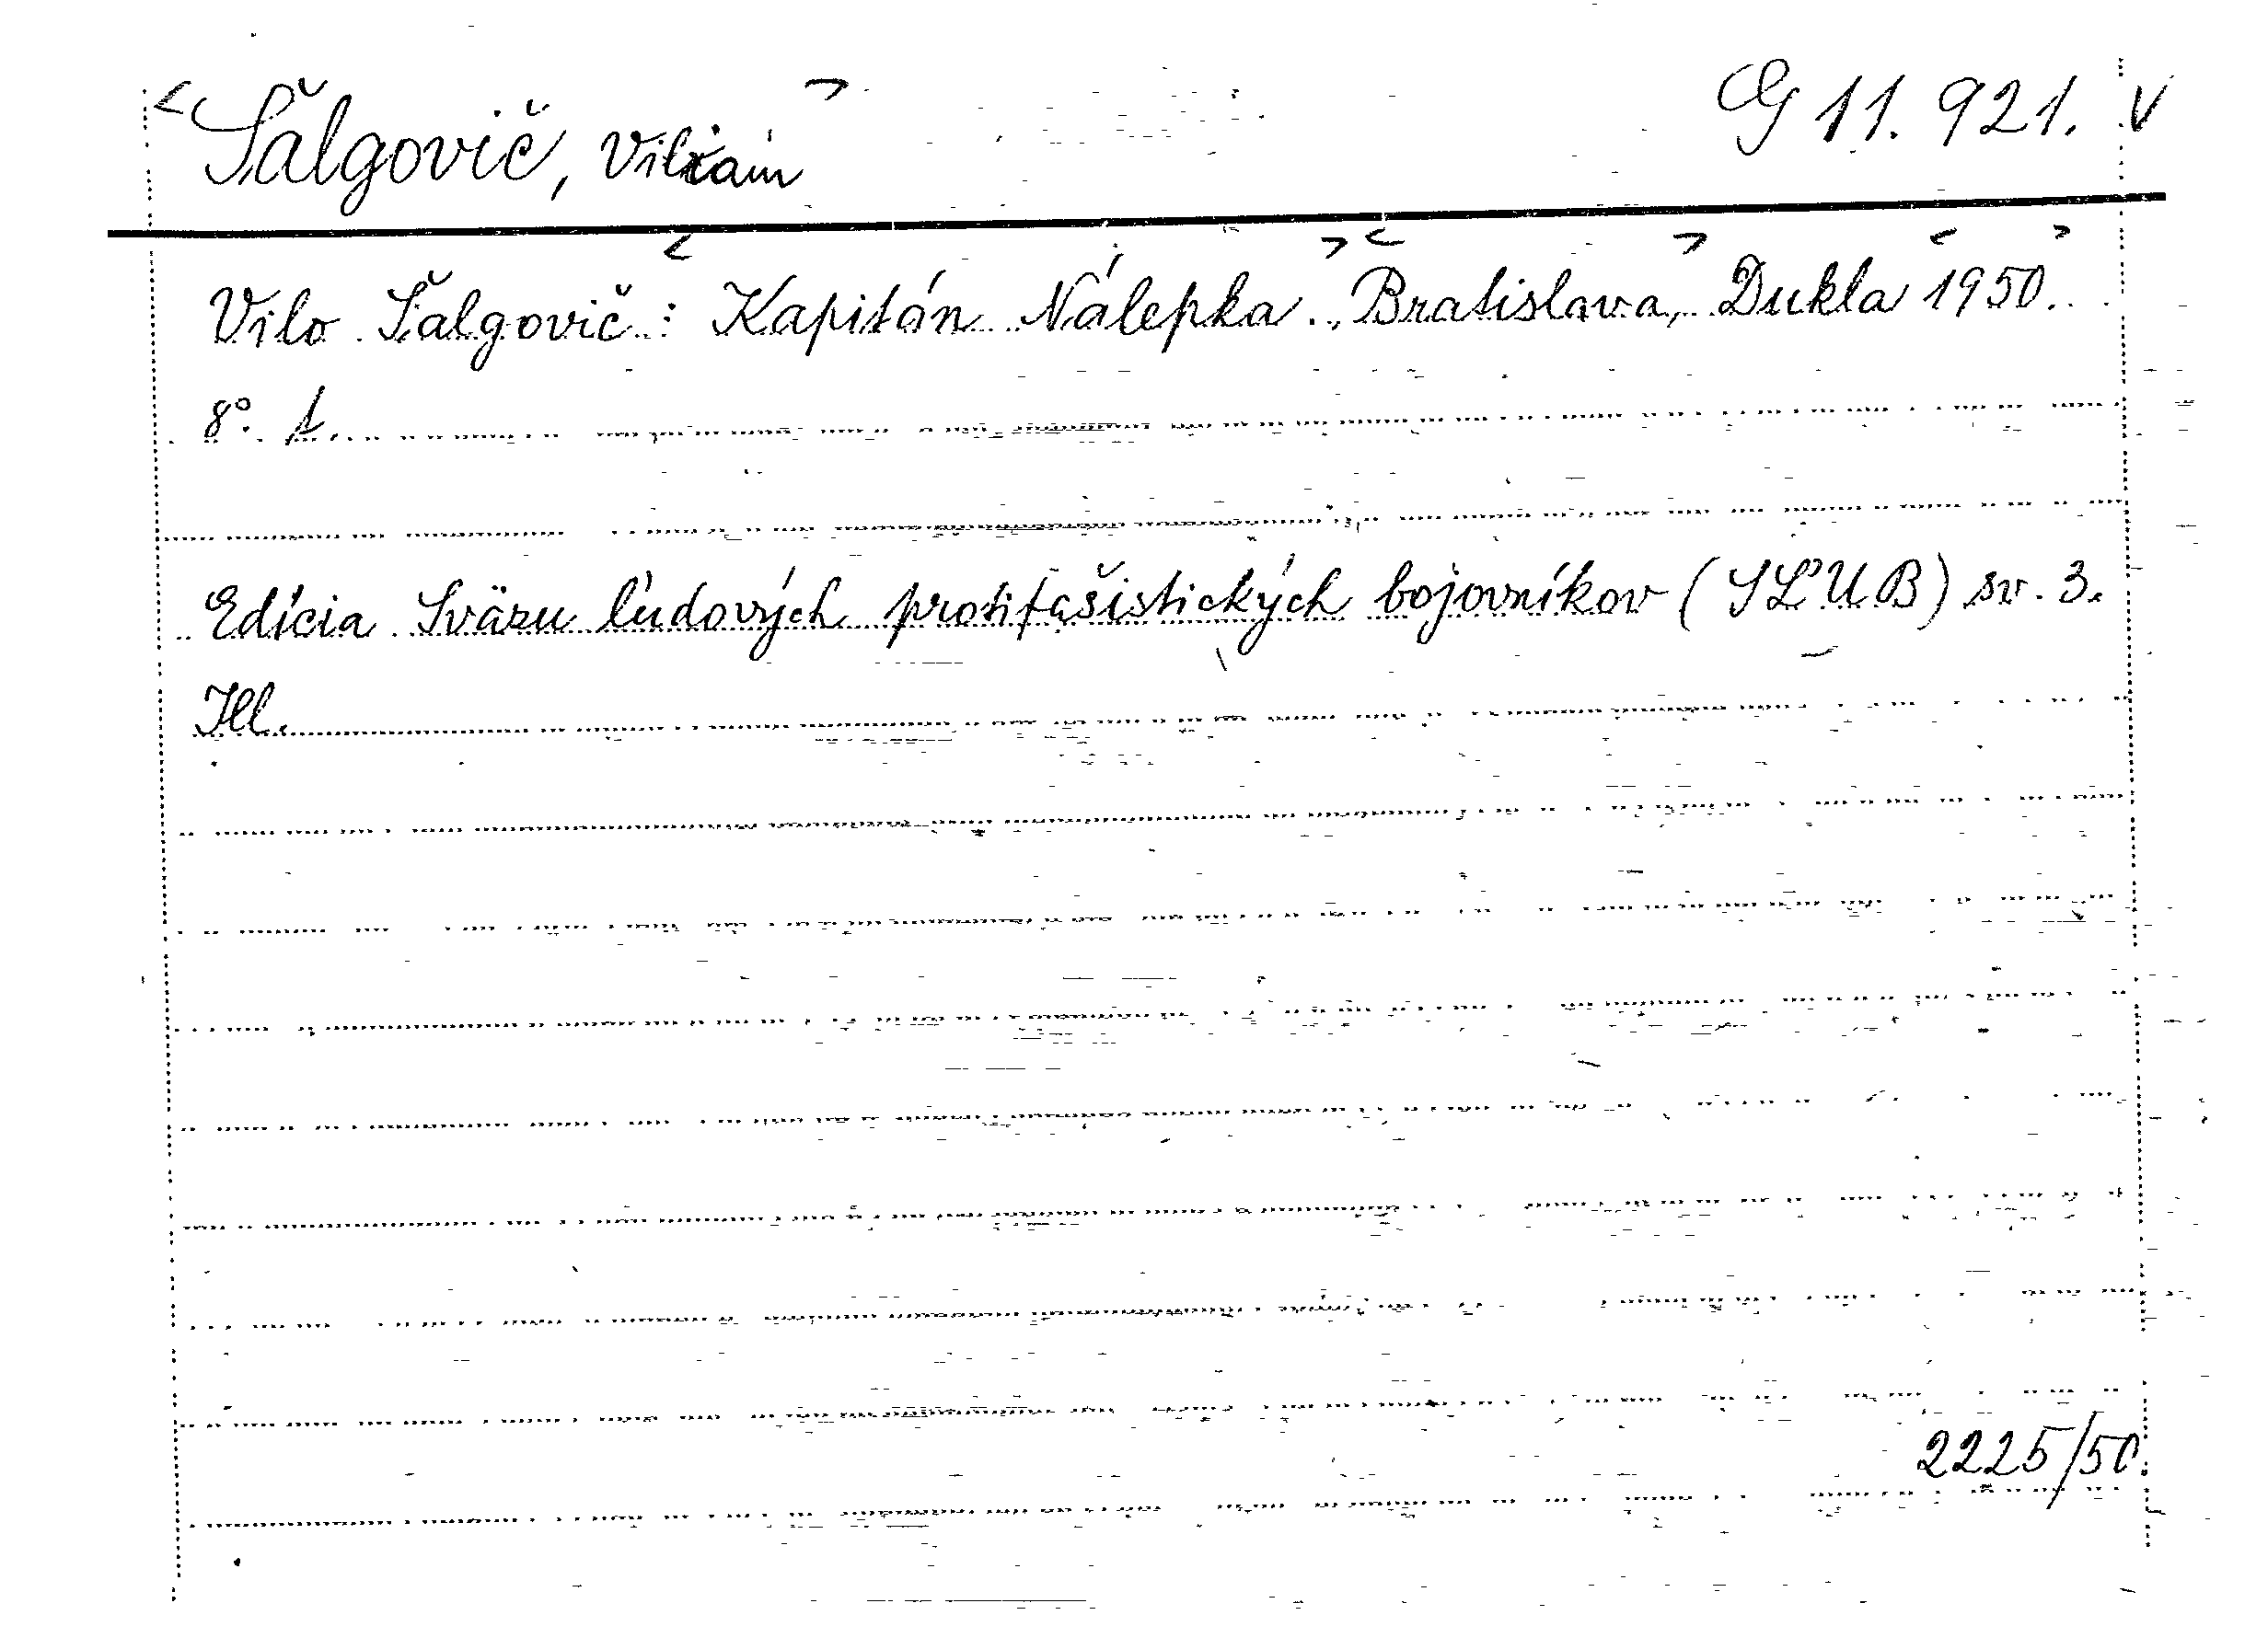 <Šalgovič, Viliam> G 11.921. V
Vilo Šalgovič: <Kapitán Nálepka.> <Bratislava,> Dukla <1950.>
8°. 1.
Edícia Sväzu ľudových protifašistických bojovníkov (SĽUB) sv. 3.
Ill.
2225/50.